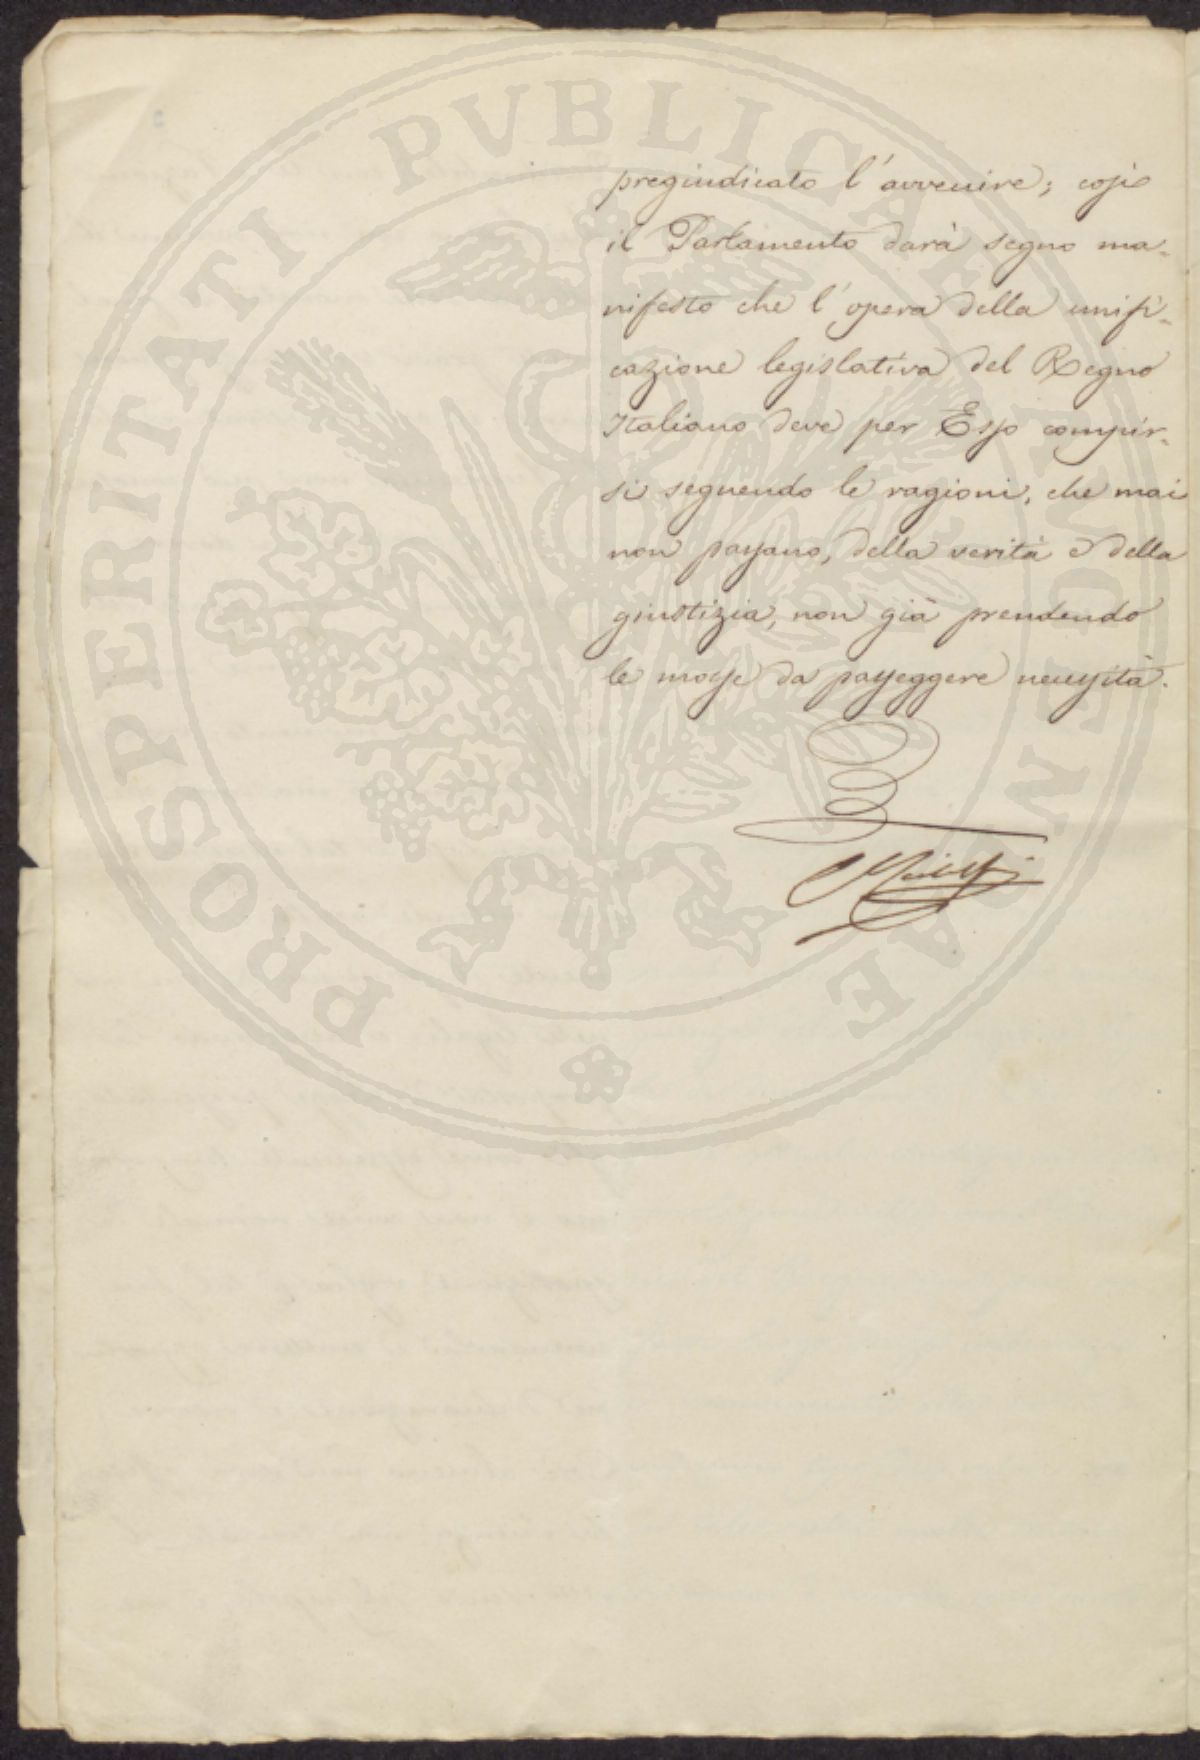 PROSPERITATI PVBLICAE
pregiudicato l'avvenire; così
il Parlamento darà segno ma-
nifesto che l'opera della unifi-
cazione legislativa del Regno
Italiano deve per Esso compir-
si seguendo le ragioni, che mai
non passano, della verità e della
giustizia, non già prendendo
le mosse da passeggere necessità.